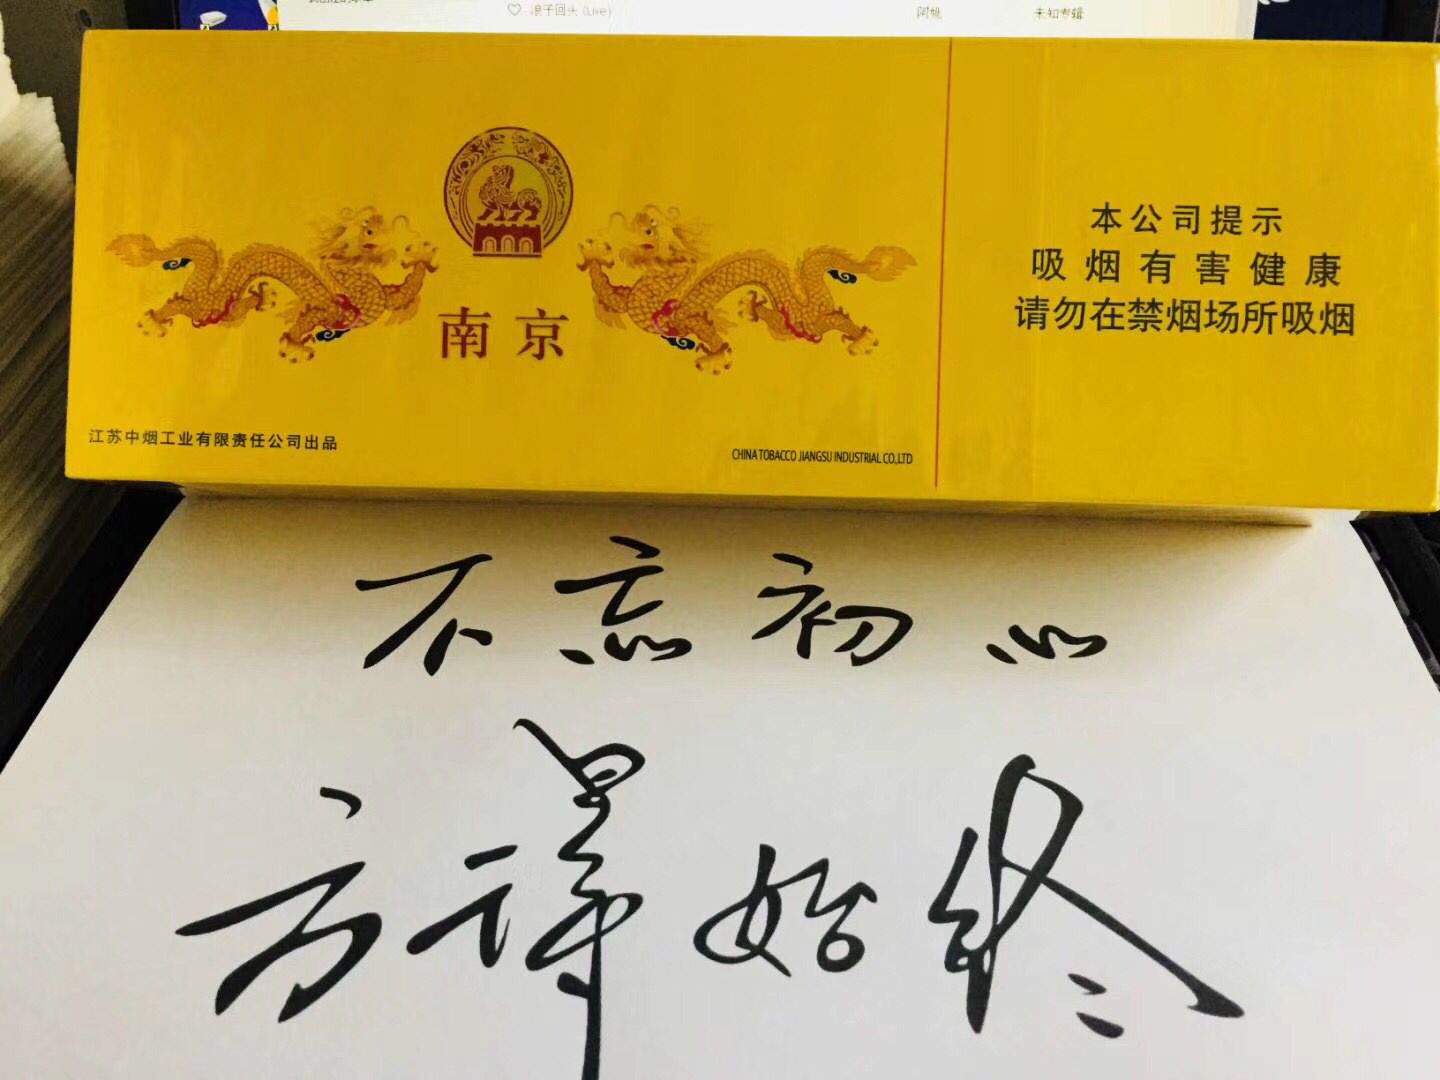 浪子回头 (Live) 未知专辑
南京
本公司提示
吸烟有害健康
请勿在禁烟场所吸烟
江苏中烟工业有限责任公司出品
CHINA TOBACCO JIANGSU INDUSTRIAL CO.,LTD
不忘初心
方得始终